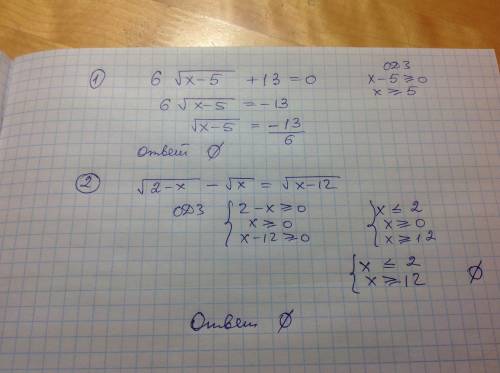 ① 6 √(x-5) + 13 = 0
ОДЗ
x-5 ≥ 0
x ≥ 5
6 √(x-5) = -13
√(x-5) = -13/6
Ответ ∅
② √(2-x) - √x = √(x-12)
ОДЗ { 2-x ≥ 0 { x ≤ 2
x ≥ 0 x ≥ 0
x-12 ≥ 0 x ≥ 12
{ x ≤ 2
x ≥ 12 ∅
Ответ ∅